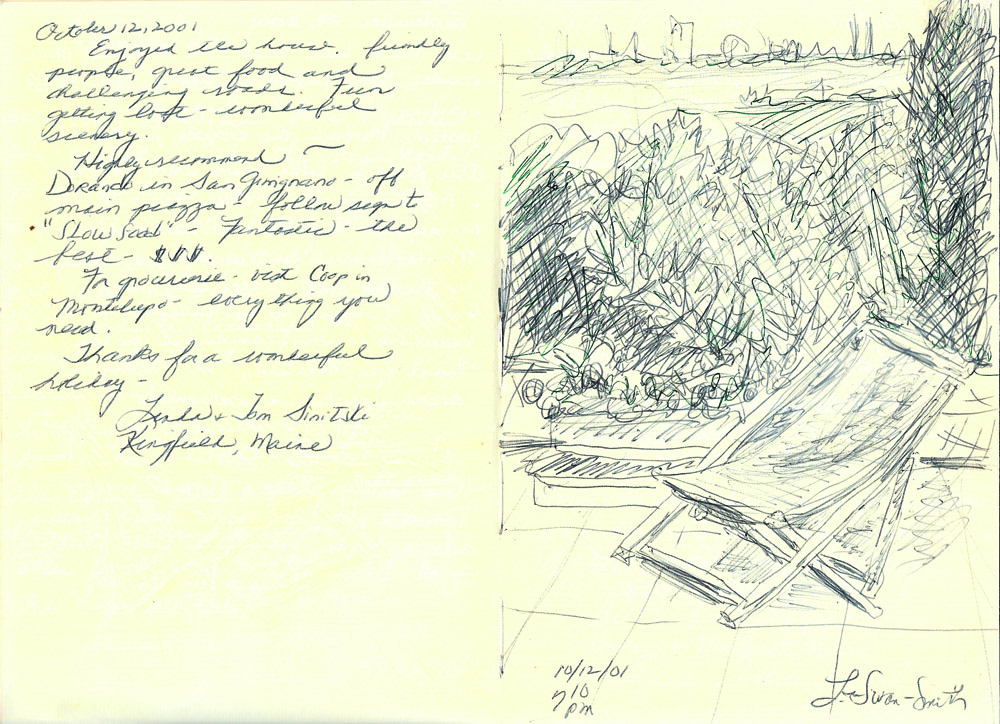 October 12, 2001
Enjoyed the house, friendly
people, great food and
challenging roads. Fun
getting lost - wonderful
scenery.
Highly recommend
Dorando in San Gimignano - off
main piazza - follow sign t
"Slow Food" - Fantastic - the
best - $$$.
For grocererie - visit Coop in
Montelupo - everything you
need.
Thanks for a wonderful
holiday -
Linda & Tom Sinitski
Kingfield, Maine
10/12/01
10
pm
Swan-Smith